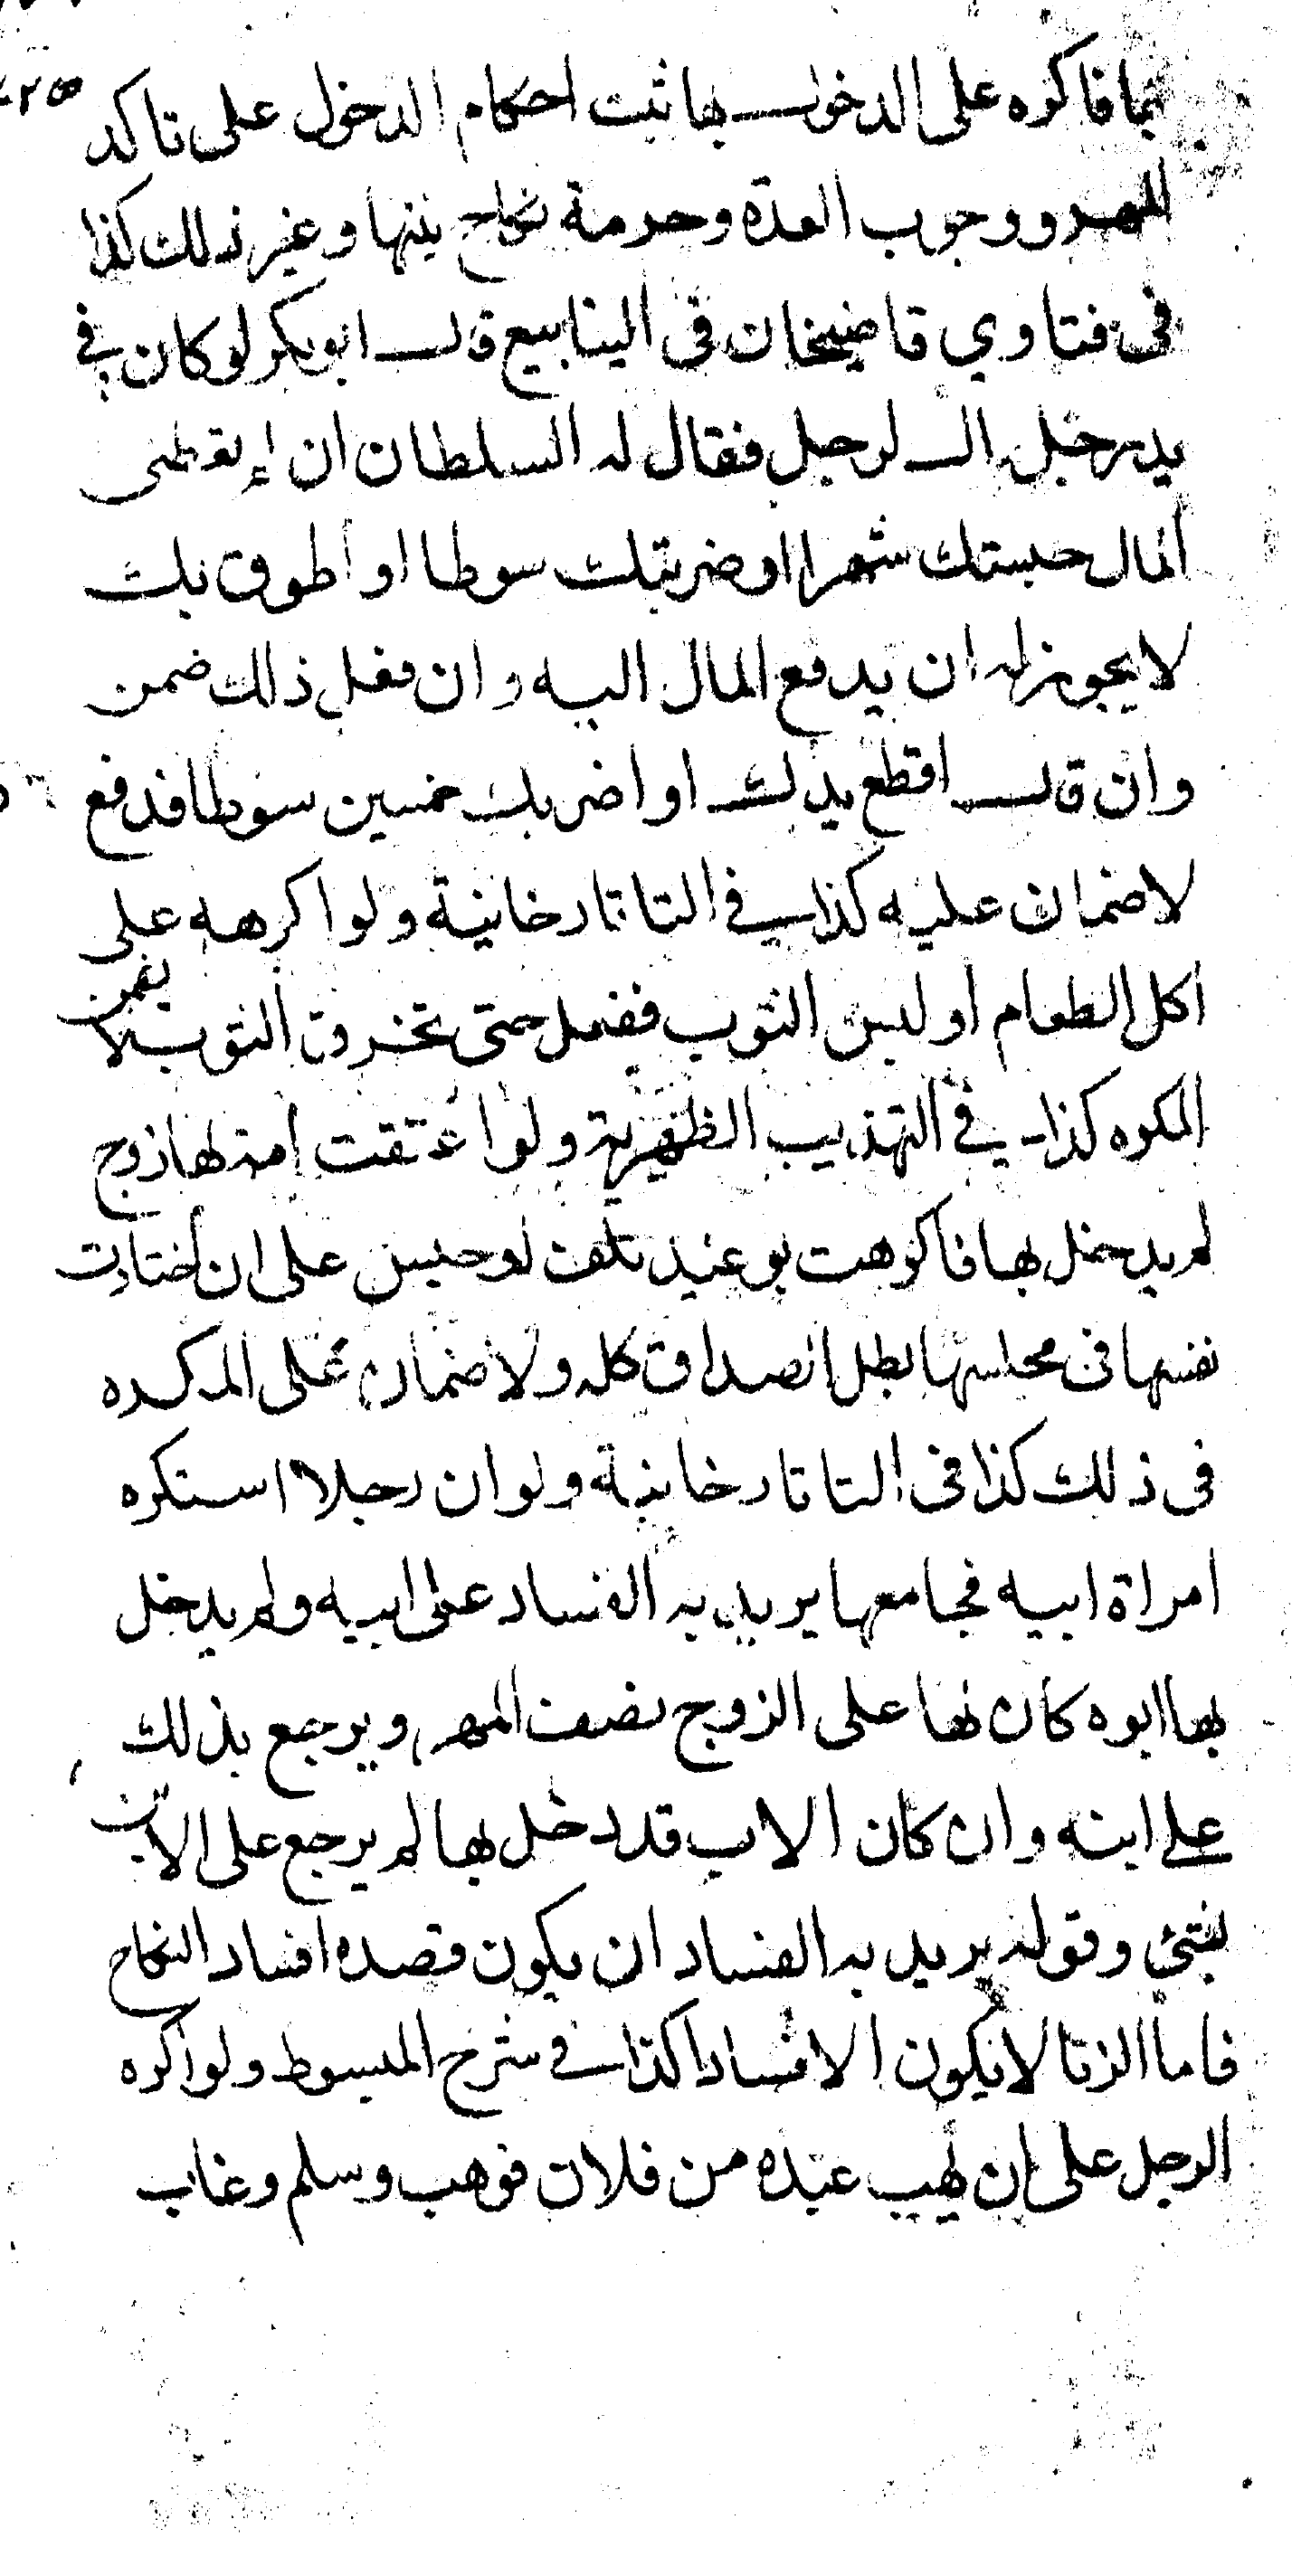 بها فاكره على الدخول بها ثبت احكام الدخول على تاكد
المهر ووجوب العدة وحرمة نكاح بنتها وغير ذلك كذا
فى فتاوي قاضيخان فى الينابيع قال ابو بكر لو كان في
يد رجل مال لرجل فقال له السلطان ان لم تعطنى
المال حبستك شهرا او ضربتك سوطا او اطوف بك
لا يجوز له ان يدفع المال اليه وان فعل ذلك ضمن
وان قال اقطع يدك او اضربك خمسين سوطا فدفع
لا ضمان عليه كذا في التاتارخانية ولو اكرهه على
اكل الطعام او لبس الثوب ففعل حتى تخرق الثوب لا يضمن
المكره كذا في التهذيب الظهيرية ولو اعتقت امة لها زوج
لم يدخل بها فاكرهت بوعيد تلف او حبس على ان اختارت
نفسها فى مجلسها بطل الصداق كله ولا ضمان على المكره
فى ذلك كذا فى التاتارخانية ولو ان رجلا استكره
امراة ابيه فجامعها يريد به الفساد على ابيه ولم يدخل
بها ابوه كان لها على الزوج نصف المهر ويرجع بذلك
على ابنه وان كان الاب قد دخل بها لم يرجع على الابن
بشئ وقوله يريد به الفساد ان يكون قصده افساد النكاح
فاما الزنا لا يكون الا فسادا كذا في شرح المبسوط ولو اكره
الرجل على ان يهب عبده من فلان فوهب وسلم وغاب